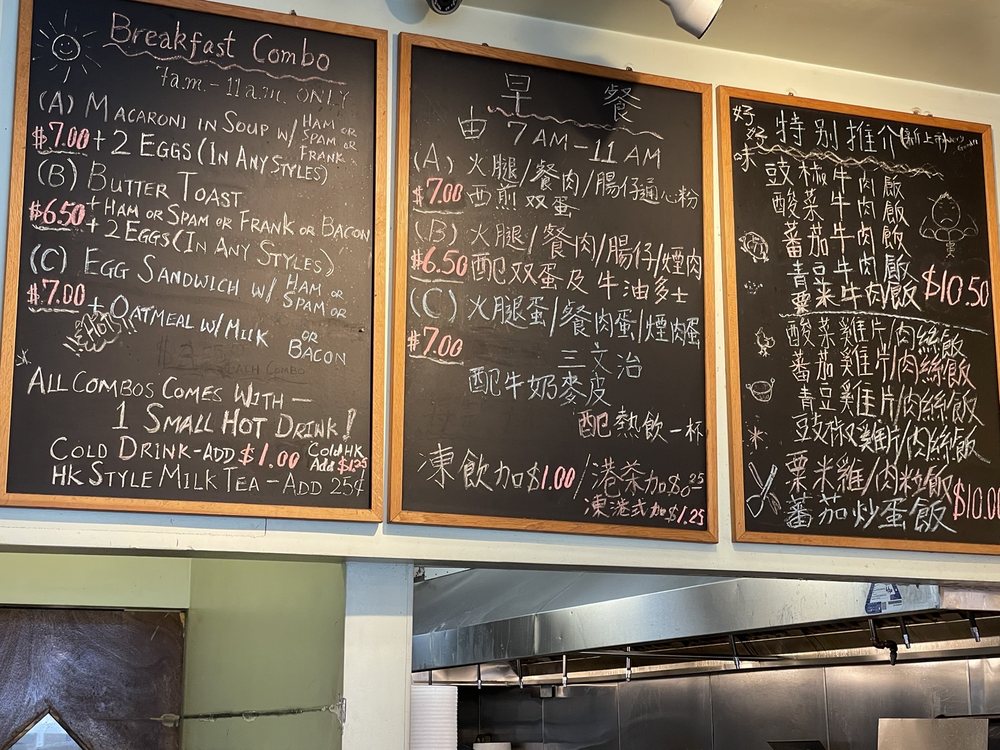 Breakfast Combo
7a.m. - 11a.m. ONLY
(A) MACARONI IN SOUP W/ HAM OR SPAM OR FRANK
$7.00 + 2 EGGS (IN ANY STYLES)
(B) BUTTER TOAST
$6.50 + HAM OR SPAM OR FRANK OR BACON
+ 2 EGGS (IN ANY STYLES)
(C) EGG SANDWICH W/ HAM OR SPAM OR
$7.00 + OATMEAL W/ MILK OR BACON
HOT!!
ALL COMBOS COMES WITH —
1 SMALL HOT DRINK!
COLD DRINK - ADD $1.00 Cold HK Add $1.25
HK STYLE MILK TEA - ADD 25¢
早 餐
由 7 AM - 11 AM
(A) 火腿/餐肉/腸仔通心粉
$7.00 西煎双蛋
(B) 火腿/餐肉/腸仔/煙肉
$6.50 配双蛋及牛油多士
(C) 火腿蛋/餐肉蛋/煙肉蛋
$7.00 三文治
配牛奶麥皮
配熱飲一杯
凍飲加$1.00/港茶加$0.25
凍港式加$1.25
好好味
特別推介(新上市)
豉椒牛肉飯
酸菜牛肉飯
蕃茄牛肉飯
青豆牛肉飯
粟米牛肉飯 $10.50
酸菜雞片/肉絲飯
蕃茄雞片/肉絲飯
青豆雞片/肉絲飯
豉椒雞片/肉絲飯
粟米雞/肉粒飯
蕃茄炒蛋飯 $10.00